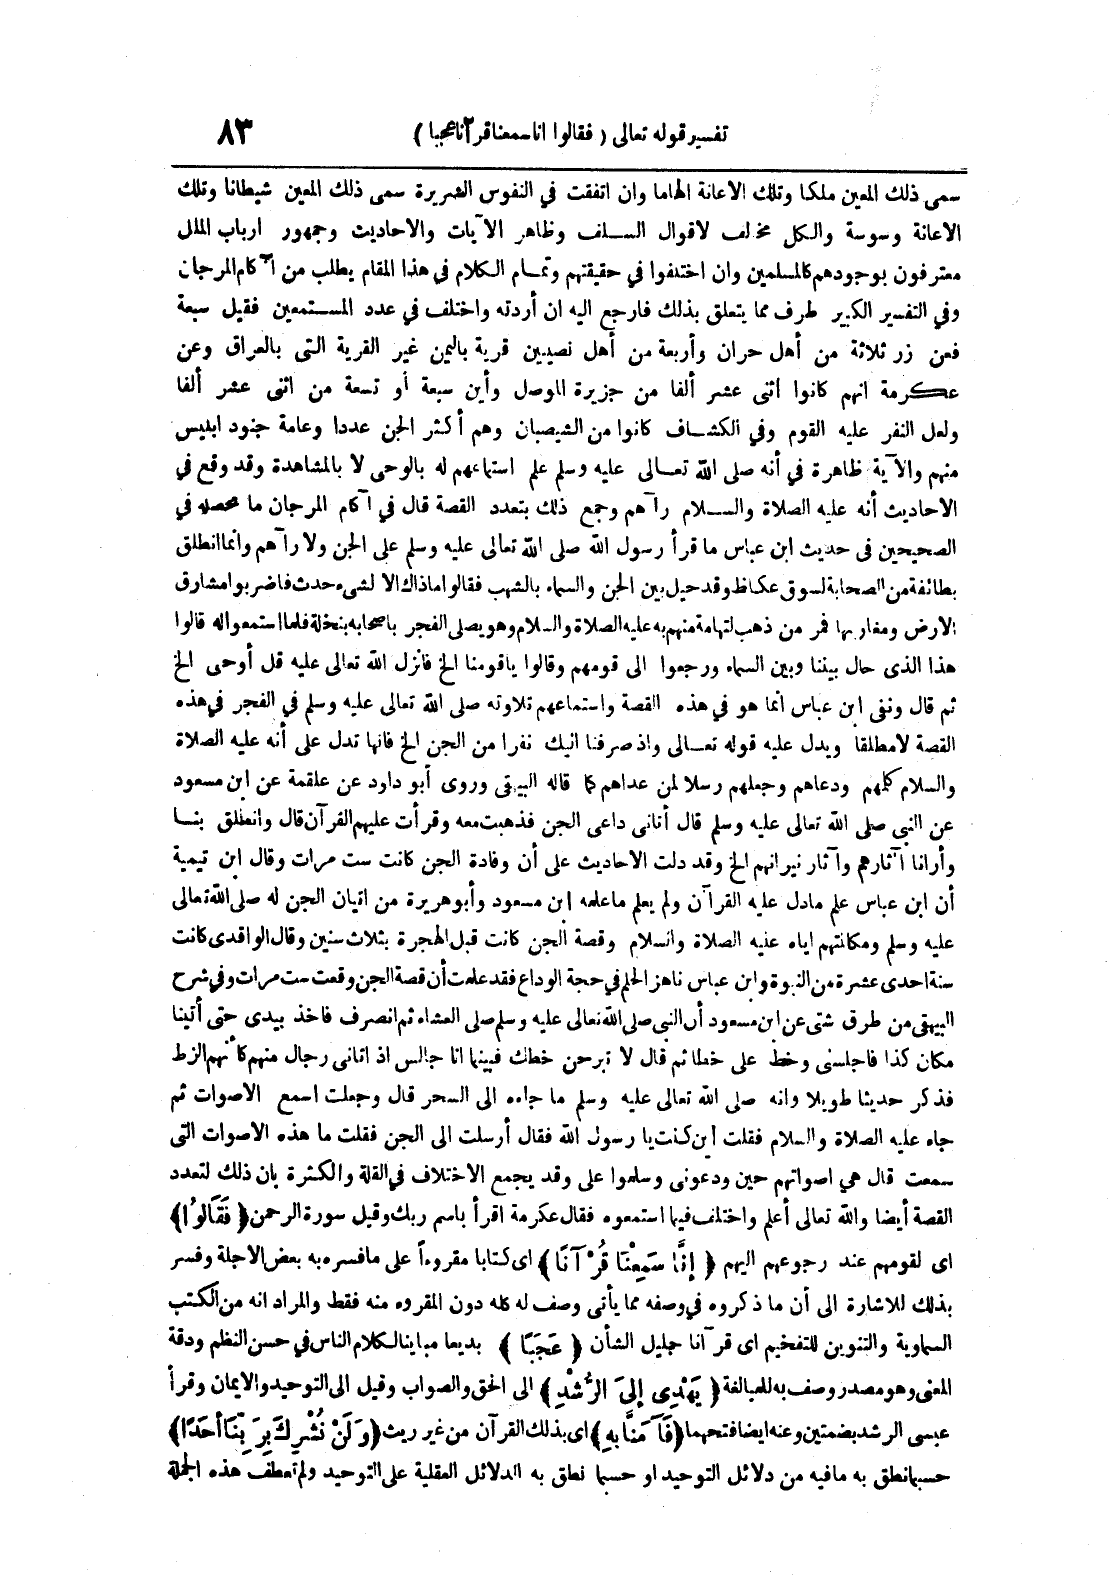 تفسير قوله تعالى ( فقالوا انا سمعنا قرآنا عجبا ) ٨٣
سمى ذلك المعين ملكا وتلك الاعانة الهاما وان اتفقت في النفوس الشريرة سمى ذلك المعين شيطانا وتلك
الاعانة وسوسة والكل مخالف لاقوال السلف وظاهر الآيات والاحاديث وجمهور ارباب الملل
معترفون بوجودهم كالمسلمين وان اختلفوا في حقيقتهم وتمام الكلام في هذا المقام يطلب من آكام المرجان
وفي التفسير الكبير طرف مما يتعلق بذلك فارجع اليه ان أردته واختلف في عدد المستمعين فقيل سبعة
فعن زر ثلاثة من أهل حران وأربعة من أهل نصيبين قرية باليمن غير القرية التى بالعراق وعن
عكرمة انهم كانوا اثنى عشر ألفا من جزيرة الموصل وأين سبعة أو تسعة من اثنى عشر ألفا
ولعل النفر عليه القوم وفي الكشاف كانوا من الشيصبان وهم أكثر الجن عددا وعامة جنود ابليس
منهم والآية ظاهرة في أنه صلى الله تعالى عليه وسلم علم استماعهم له بالوحى لا بالمشاهدة وقد وقع في
الاحاديث أنه عليه الصلاة والسلام رآهم وجمع ذلك بتعدد القصة قال في آكام المرجان ما محصله في
الصحيحين فى حديث ابن عباس ما قرأ رسول الله صلى الله تعالى عليه وسلم على الجن ولا رآهم وانما انطلق
بطائفة من الصحابة لسوق عكاظ وقد حيل بين الجن والسماء بالشهب فقالوا ماذاك الا لشىء حدث فاضربوا مشارق
الارض ومغاربها فمر من ذهب لتهامة منهم به عليه الصلاة والسلام وهو يصلى الفجر باصحابه بنخلة فلما استمعوا له قالوا
هذا الذى حال بيننا وبين السماء ورجعوا الى قومهم وقالوا ياقومنا الخ فانزل الله تعالى عليه قل أوحى الخ
ثم قال ونفى ابن عباس انما هو في هذه القصة واستماعهم تلاوته صلى الله تعالى عليه وسلم في الفجر في هذه
القصة لا مطلقا ويدل عليه قوله تعالى واذ صرفنا اليك نفرا من الجن الخ فانها تدل على أنه عليه الصلاة
والسلام كلمهم ودعاهم وجعلهم رسلا لمن عداهم كما قاله البيهقى وروى أبو داود عن علقمة عن ابن مسعود
عن النبي صلى الله تعالى عليه وسلم قال أتانى داعى الجن فذهبت معه وقرأت عليهم القرآن قال وانطلق بنا
وأرانا آثارهم وآثار نيرانهم الخ وقد دلت الاحاديث على أن وفادة الجن كانت ست مرات وقال ابن تيمية
أن ابن عباس علم مادل عليه القرآن ولم يعلم ماعلمه ابن مسعود وأبو هريرة من اتيان الجن له صلى الله تعالى
عليه وسلم ومكالمتهم اياه عليه الصلاة والسلام وقصة الجن كانت قبل الهجرة بثلاث سنين وقال الواقدى كانت
سنة احدى عشرة من النبوة وابن عباس ناهز الحلم في حجة الوداع فقد علمت أن قصة الجن وقعت ست مرات وفي شرح
البيهقى من طرق شتى عن ابن مسعود أن النبي صلى الله تعالى عليه وسلم صلى العشاء ثم انصرف فاخذ بيدى حتى أتينا
مكان كذا فاجلسنى وخط على خطا ثم قال لا تبرحن خطك فبينما انا جالس اذ اتانى رجال منهم كأنهم الزط
فذكر حديثا طويلا وانه صلى الله تعالى عليه وسلم ما جاءه الى السحر قال وجعلت اسمع الاصوات ثم
جاء عليه الصلاة والسلام فقلت أين كنت يا رسول الله فقال أرسلت الى الجن فقلت ما هذه الاصوات التى
سمعت قال هي اصواتهم حين ودعونى وسلموا على وقد يجمع الاختلاف في القلة والكثرة بان ذلك لتعدد
القصة أيضا والله تعالى أعلم واختلف فيما استمعوه فقال عكرمة اقرأ باسم ربك وقيل سورة الرحمن ﴿ فَقَالُوا ﴾
اى لقومهم عند رجوعهم اليهم ﴿ إِنَّا سَمِعْنَا قُرْآنًا ﴾ اى كتابا مقروءاً على مافسره به بعض الاجلة وفسر
بذلك للاشارة الى أن ما ذكروه في وصفه مما يأتى وصف له كله دون المقروء منه فقط والمراد انه من الكتب
السماوية والتنوين للتفخيم اى قرآنا جليل الشأن ﴿ عَجَبًا ﴾ بديعا مباينا لكلام الناس في حسن النظم ودقة
المعنى وهو مصدر وصف به للمبالغة ﴿ يَهْدِى إِلَى الرُّشْدِ ﴾ الى الحق والصواب وقيل الى التوحيد والايمان وقرأ
عيسى الرشد بضمتين وعنه ايضا فتحهما ﴿ فَآمَنَّا بِهِ ﴾ اى بذلك القرآن من غير ريث ﴿ وَلَنْ نُشْرِكَ بِرَبِّنَا أَحَدًا ﴾
حسبما نطق به مافيه من دلائل التوحيد او حسبما نطق به الدلائل العقلية على التوحيد ولم تعطف هذه الجملة